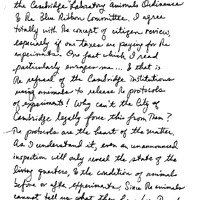 the Cambridge Laboratory Animals Ordinance
& the Blue Ribbon Committee. I agree
totally with the concept of citizen review,
especially if our taxes are paying for the
experiments! One fact which I read
particularly enrages me... & that is
the refusal of the Cambridge institutions
using animals to release the protocols
of experiments! Why can't the City of
Cambridge legally force this from them?
The protocols are the heart of the matter.
As I understand it, even an unannounced
inspection will only reveal the state of the
living quarters, & the condition of animals
before or after experiments. Since the animals
cannot tell us what they